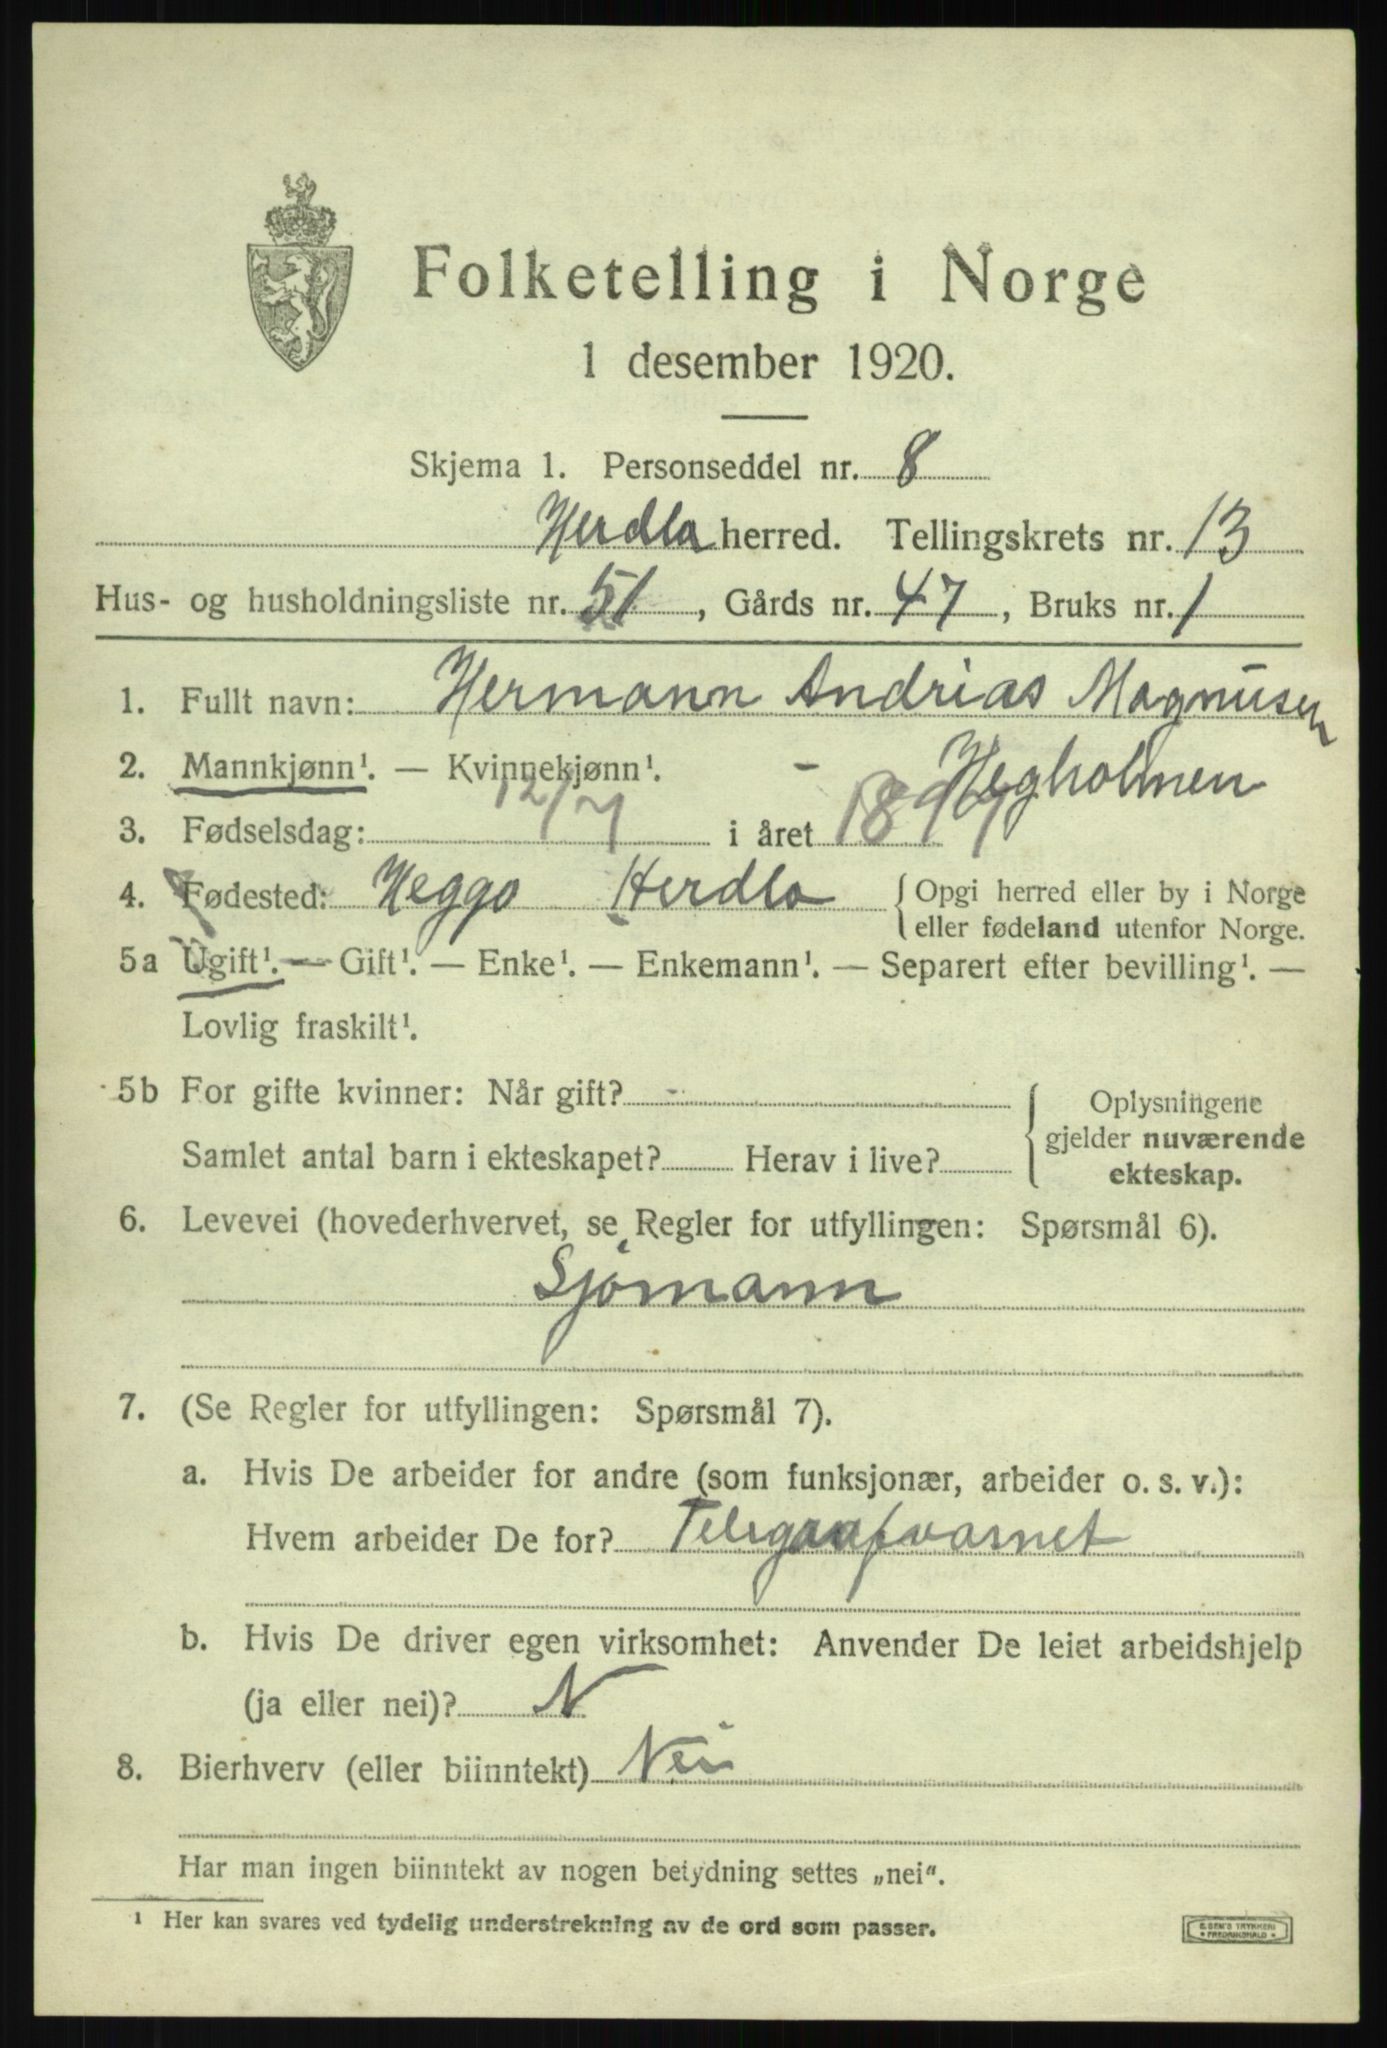 Folketelling i Norge
1 desember 1920.
Skjema 1. Personseddel nr. 8
Herdla herred. Tellingskrets nr. 13
Hus- og husholdningsliste nr. 51, Gårds nr. 47, Bruks nr. 1
1. Fullt navn: Hermann Andrias Magnusen
2. Mannkjønn¹. — Kvinnekjønn¹. - Hegholmen
3. Fødselsdag: 12/7 i året
4. Fødested: Heggo Herdla { Opgi herred eller by i Norge
eller fødeland utenfor Norge.
5a Ugift¹. — Gift¹. — Enke¹. — Enkemann¹. — Separert efter bevilling¹. —
Lovlig fraskilt¹.
5b For gifte kvinner: Når gift? - { Oplysningene
Samlet antal barn i ekteskapet? Herav i live? gjelder nuværende
ekteskap.
6. Levevei (hovederhvervet, se Regler for utfyllingen: Spørsmål 6).
Sjømann
7. (Se Regler for utfyllingen: Spørsmål 7).
a. Hvis De arbeider for andre (som funksjonær, arbeider o. s. v.):
Hvem arbeider De for? Telegrafvasnet
b. Hvis De driver egen virksomhet: Anvender De leiet arbeidshjelp
(ja eller nei)? N
8. Bierhverv (eller biinntekt) Nei
Har man ingen biinntekt av nogen betydning settes „nei“.
¹ Her kan svares ved tydelig understrekning av de ord som passer.
E. SEM'S TRYKKERI
* FREDRIKSHALD *